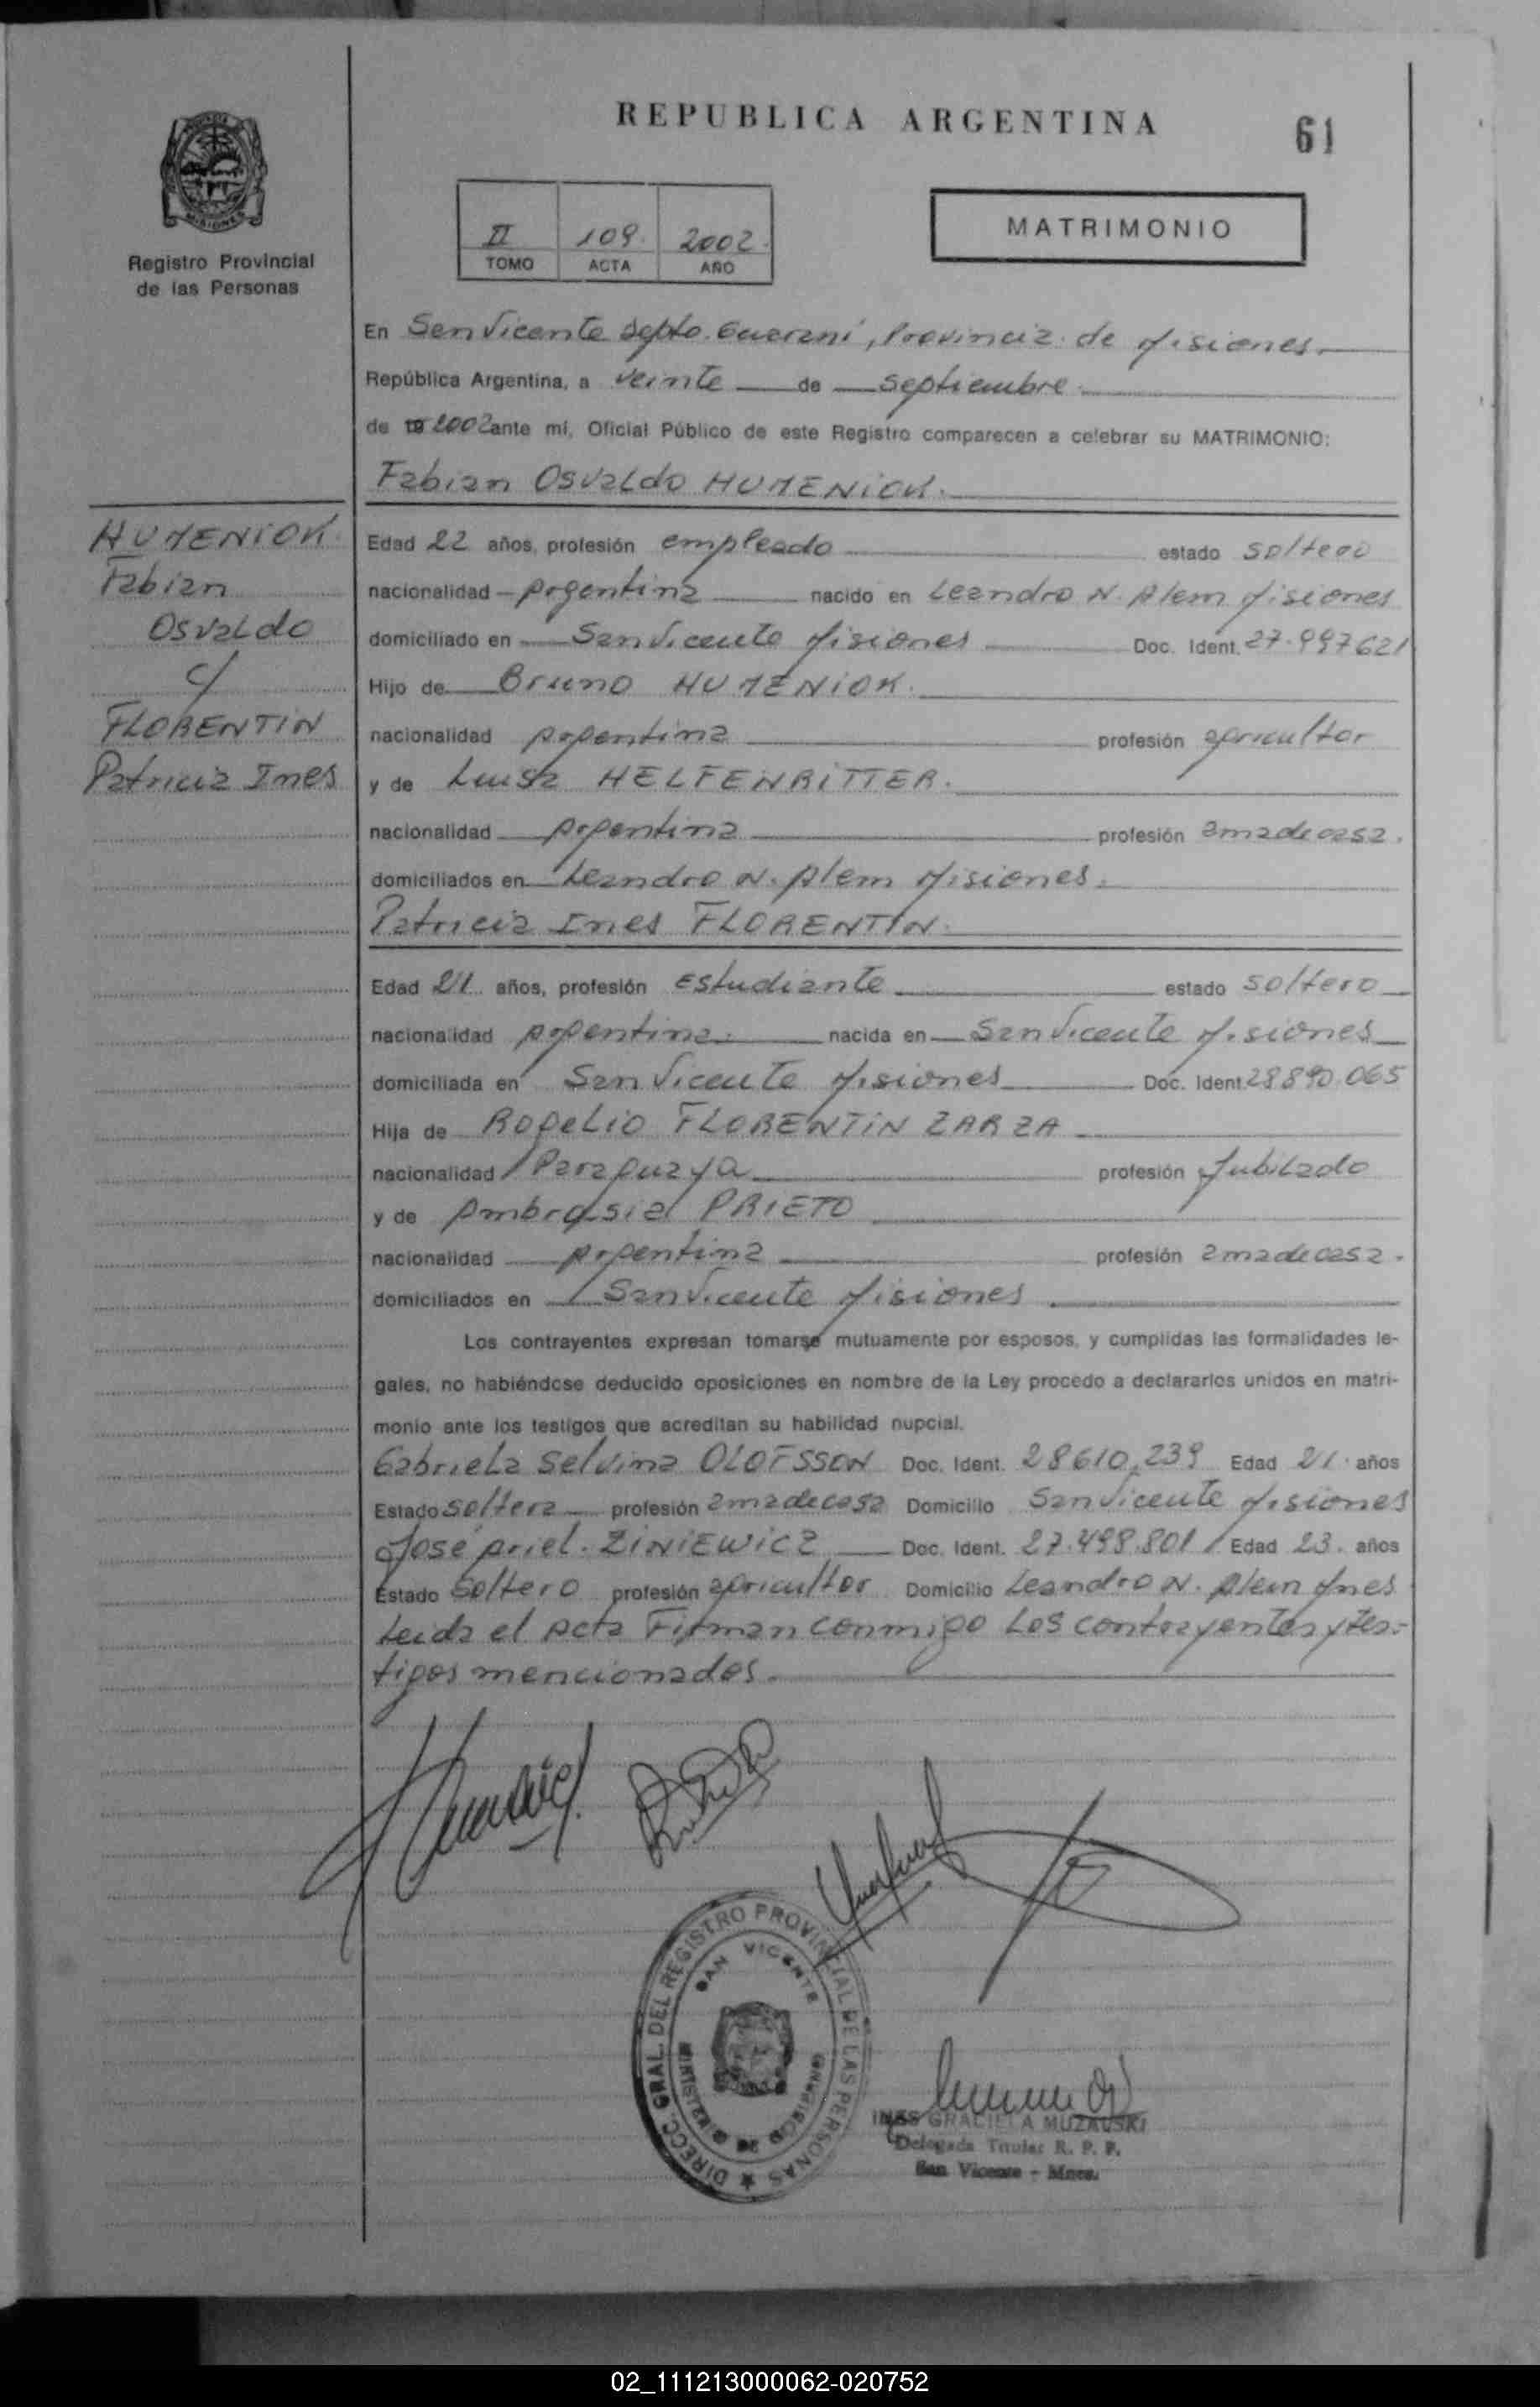 REPUBLICA ARGENTINA
61
MATRIMONIO
II 109. 2002.
TOMO ACTA AÑO
Registro Provincial
de las Personas
En San Vicente Depto. Guarani, Provincia de Misiones.
República Argentina, a veinte de septiembre
de 19 2002 ante mí, Oficial Público de este Registro comparecen a celebrar su MATRIMONIO:
Fabian Osvaldo HUMENIOK.
HUMENIOK
Fabian
Osvaldo
c/
FLORENTIN
Patricia Ines
Edad 22 años, profesión empleado estado soltero
nacionalidad Argentina nacido en Leandro N. Alem Misiones
domiciliado en San Vicente Misiones Doc. Ident. 27.997621
Hijo de Bruno HUMENIOK.
nacionalidad Argentina profesión agricultor
y de Luisa HELFENRITTER.
nacionalidad Argentina profesión ama de casa.
domiciliados en Leandro N. Alem Misiones.
Patricia Ines FLORENTIN.
Edad 21 años, profesión Estudiante estado soltero
nacionalidad Argentina. nacida en San Vicente Misiones
domiciliada en San Vicente Misiones Doc. Ident. 28890.065
Hija de Rogelio FLORENTIN ZARZA
nacionalidad Paraguaya profesión Jubilado
y de Ambrosia PRIETO
nacionalidad Argentina profesión ama de casa.
domiciliados en San Vicente Misiones
Los contrayentes expresan tomarse mutuamente por esposos, y cumplidas las formalidades le-
gales, no habiéndose deducido oposiciones en nombre de la Ley procedo a declararlos unidos en matri-
monio ante los testigos que acreditan su habilidad nupcial.
Gabriela Selvina OLOFSSON Doc. Ident. 28610.239 Edad 21. años
Estado Soltera profesión ama de casa Domicilio San Vicente Misiones
José Ariel. ZINIEWICZ Doc. Ident. 27.498.801 Edad 23. años
Estado Soltero profesión agricultor Domicilio Leandro N. Alem Mnes
Leida el Acta Firman conmigo Los contrayentes y tes-
tigos mencionados.
DIRECC. GRAL. DEL REGISTRO PROVINCIAL DE LAS PERSONAS
SAN VICENTE
INES GRACIELA MUZALSKI
Delegada Titular R. P. P.
San Vicente - Mnes.
02_111213000062-020752